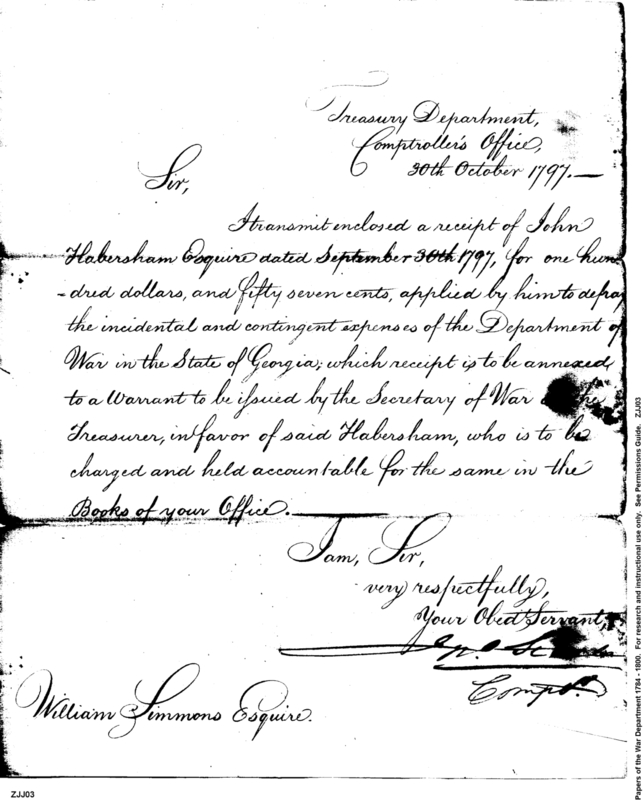 Treasury Department,
Comptroller's Office,
30th October 1797.
Sir,
I transmit enclosed a receipt of John
Habersham Esquire dated September 30th 1797, for one hun
-dred dollars, and fifty seven cents, applied by him to defray
the incidental and contingent expenses of the Department of
War in the State of Georgia; which receipt is to be annexed
to a Warrant to be issued by the Secretary of War
Treasurer, in favor of said Habersham, who is to be
charged and held accountable for the same in the
Books of your Office.
I am, Sir,
very respectfully,
Your Obedt Servant,
Jno
Comptr.
William Simmons Esquire.
ZJJ03
Papers of the War Department 1784 - 1800. For research and instructional use only. See Permissions Guide. ZJJ03